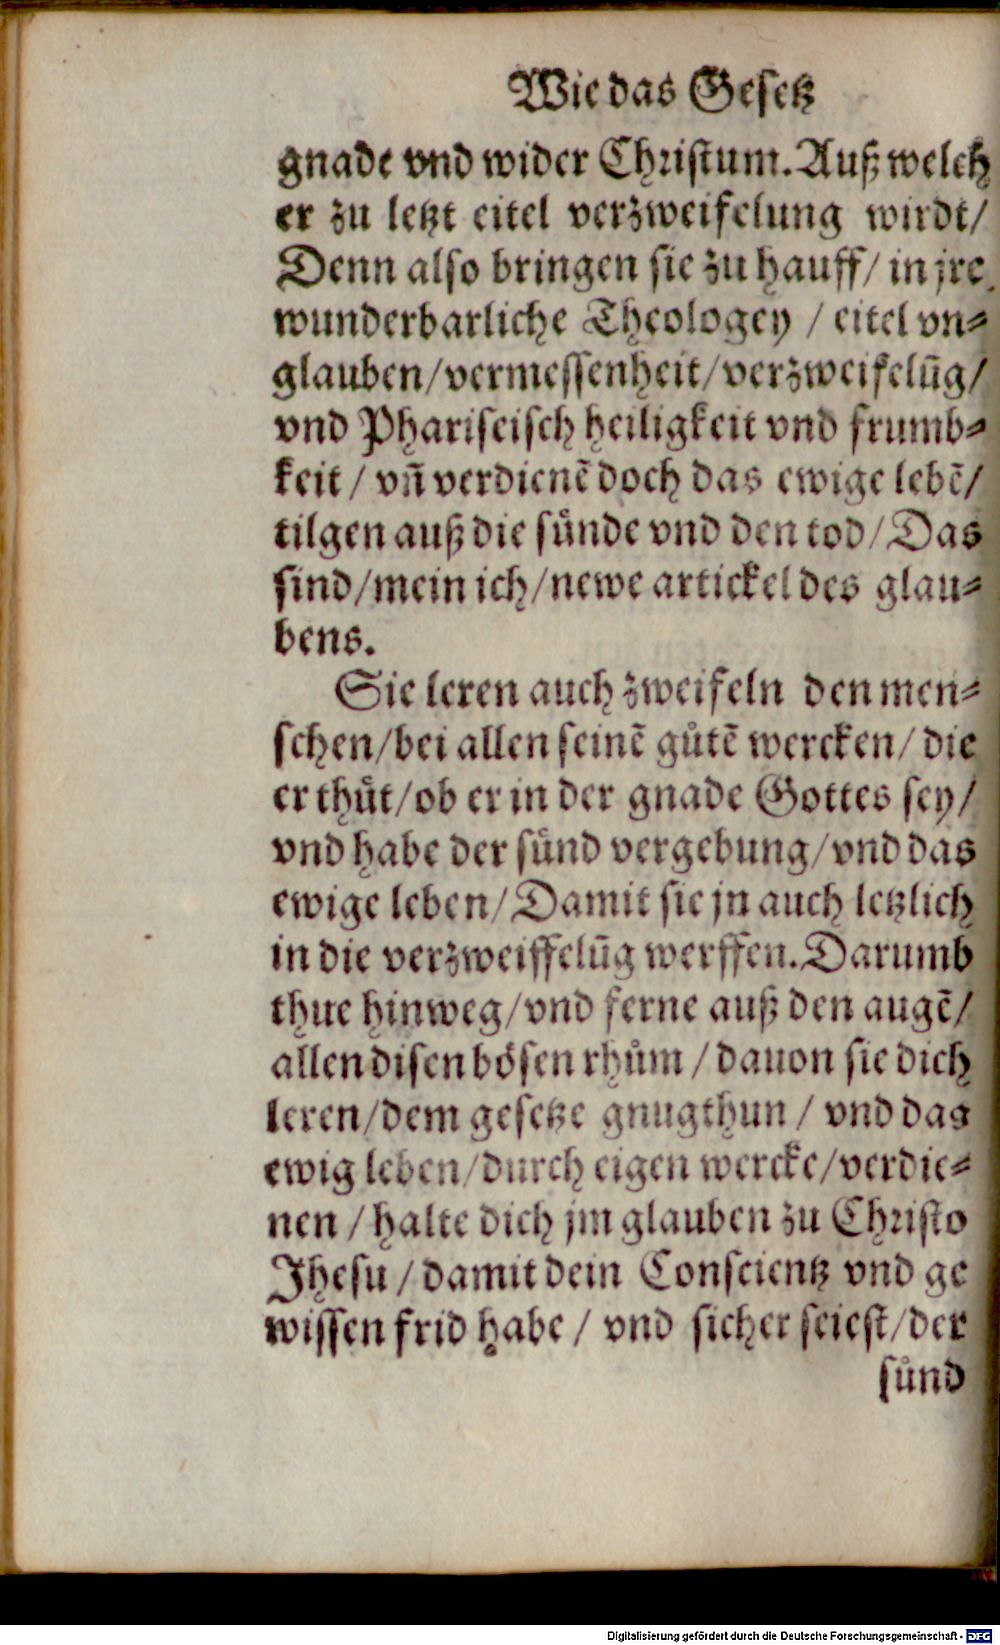 Wie das Gesetz
gnade vnd wider Christum. Auß welch
er zu letzt eitel verzweifelung wirdt/
Denn also bringen sie zu hauff/ in jre
wunderbarliche Theologey / eitel vn⸗
glauben/vermessenheit/verzweifelūg/
vnd Phariseisch heiligkeit vnd frumb⸗
keit / vn̄ verdienē doch das ewige lebē/
tilgen auß die sünde vnd den tod/ Das
sind/mein ich/newe artickel des glau⸗
bens.
Sie leren auch zweifeln den men⸗
schen/bei allen seinē gůtē wercken/ die
er thůt/ob er in der gnade Gottes sey/
vnd habe der sünd vergebung/vnd das
ewige leben/Damit sie jn auch letzlich
in die verzweiffelūg werffen. Darumb
thue hinweg/vnd ferne auß den augē/
allen disen bösen rhům / dauon sie dich
leren/dem gesetze gnugthun / vnd das
ewig leben/durch eigen wercke/verdie⸗
nen / halte dich jm glauben zu Christo
Jhesu / damit dein Conscientz vnd ge
wissen frid habe / vnd sicher seiest/der
sünd
Digitalisierung gefördert durch die Deutsche Forschungsgemeinschaft - DFG